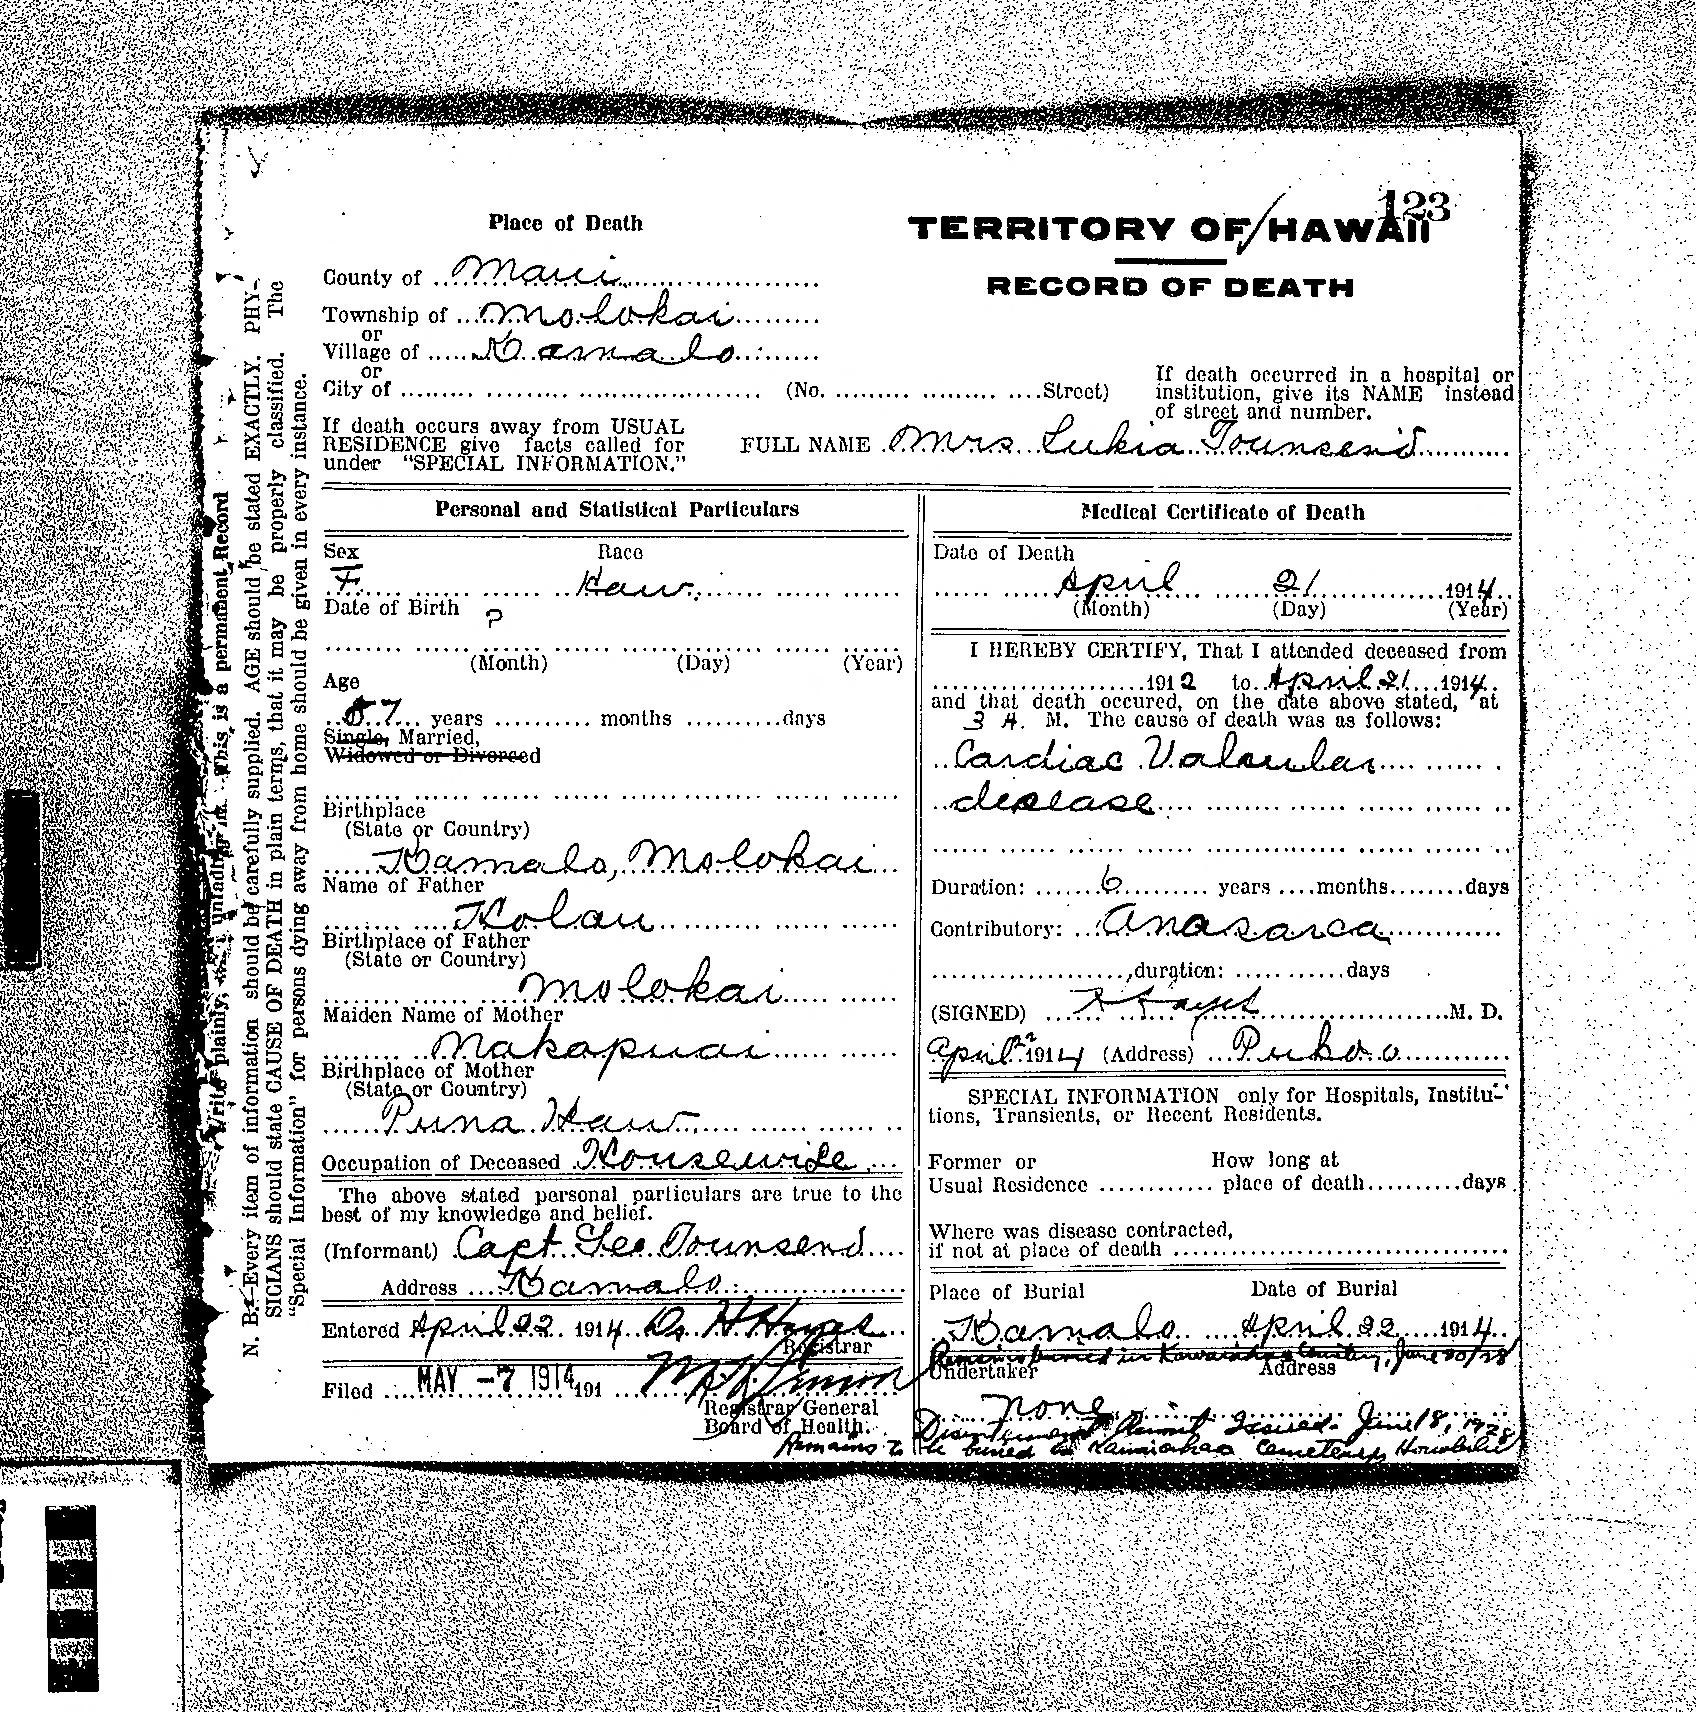 123
Place of Death
TERRITORY OF HAWAII
RECORD OF DEATH
County of Maui
Township of Molokai
or
Village of Kamalo
or
City of (No. Street)
If death occurred in a hospital or
institution, give its NAME instead
of street and number.
If death occurs away from USUAL
RESIDENCE give facts called for
under "SPECIAL INFORMATION."
FULL NAME Mrs. Lukia Townsend
Personal and Statistical Particulars
Sex Race
F Haw.
Date of Birth ?
(Month) (Day) (Year)
Age
57 years months days
Single, Married,
Widowed or Divorced
Birthplace
(State or Country)
Kamalo, Molokai
Name of Father
Kolau
Birthplace of Father
(State or Country)
Molokai
Maiden Name of Mother
Nakapuai
Birthplace of Mother
(State or Country)
Puna Haw
Occupation of Deceased Housewife
The above stated personal particulars are true to the
best of my knowledge and belief.
(Informant) Capt. Geo. Townsend
Address Kamalo
Entered April 22 1914 Dr. H Hayes
Registrar
Filed MAY -7 1914 191
Registrar General
Board of Health.
Medical Certificate of Death
Date of Death
April 21 1914
(Month) (Day) (Year)
I HEREBY CERTIFY, That I attended deceased from
1912 to April 21 1914
and that death occured, on the date above stated, at
3 A. M. The cause of death was as follows:
Cardiac Valvular
disease
Duration: 6 years months days
Contributory: Anasarca
duration: days
(SIGNED) H Hayes M. D.
April 22 1914 (Address) Pukoo
SPECIAL INFORMATION only for Hospitals, Institu-
tions, Transients, or Recent Residents.
Former or How long at
Usual Residence place of death days
Where was disease contracted,
if not at place of death
Place of Burial Date of Burial
Kamalo April 22 1914
Remains buried in Kawaiahao Cemetery, June 20/28
Undertaker Address
none
Disinterment Permit Issued June 18, 1928
Remains to be buried in Kawaiahao Cemetery, Honolulu
N. B.—Every item of information should be carefully supplied. AGE should be stated EXACTLY. PHY-
SICIANS should state CAUSE OF DEATH in plain terms, that it may be properly classified. The
"Special Information" for persons dying away from home should be given in every instance.
Write plainly, unfading This is a permanent Record